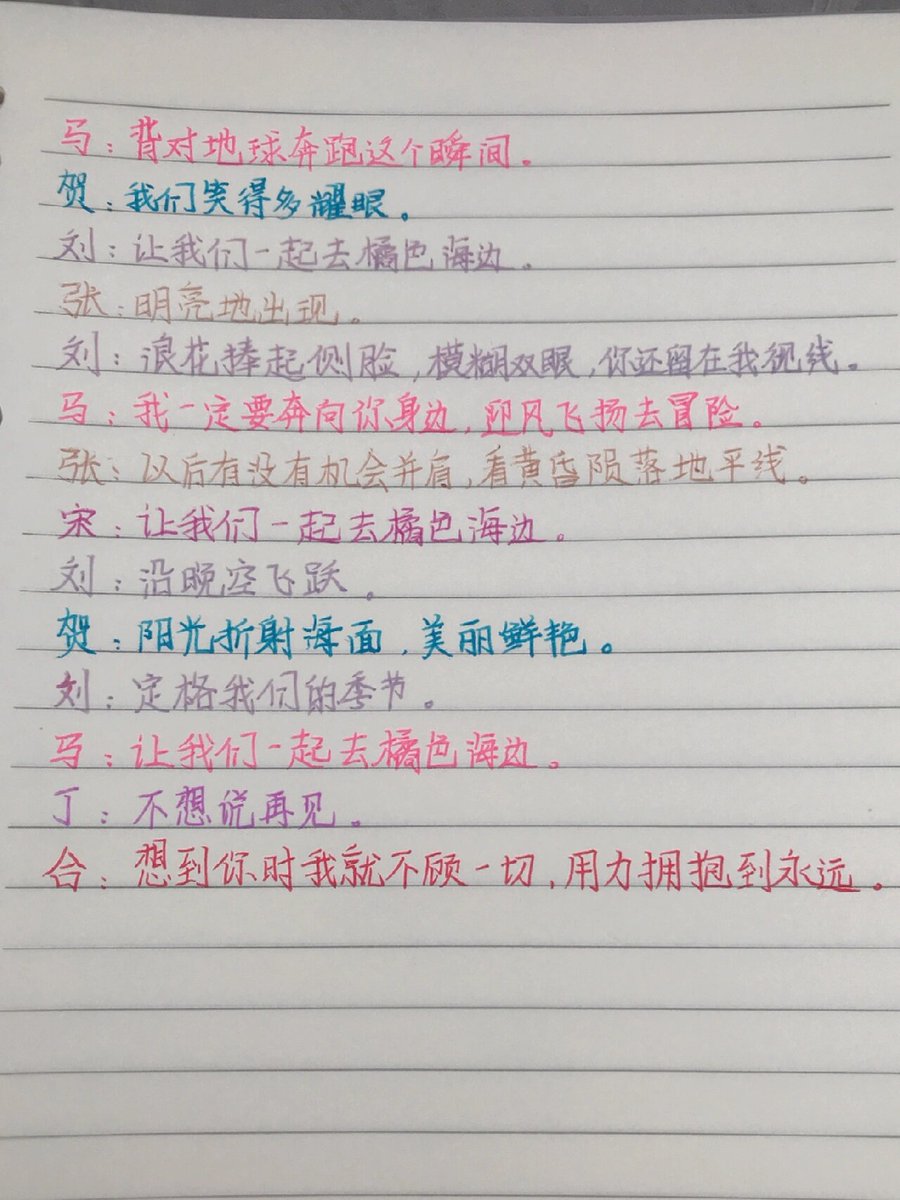 马：背对地球奔跑这个瞬间。
贺：我们笑得多耀眼。
刘：让我们一起去橘色海边。
张：明亮地出现。
刘：浪花捧起侧脸，模糊双眼，你还留在我视线。
马：我一定要奔向你身边，迎风飞扬去冒险。
张：以后有没有机会并肩，看黄昏陨落地平线。
宋：让我们一起去橘色海边。
刘：沿晚空飞跃。
贺：阳光折射海面，美丽鲜艳。
刘：定格我们的季节。
马：让我们一起去橘色海边。
丁：不想说再见。
合：想到你时我就不顾一切，用力拥抱到永远。